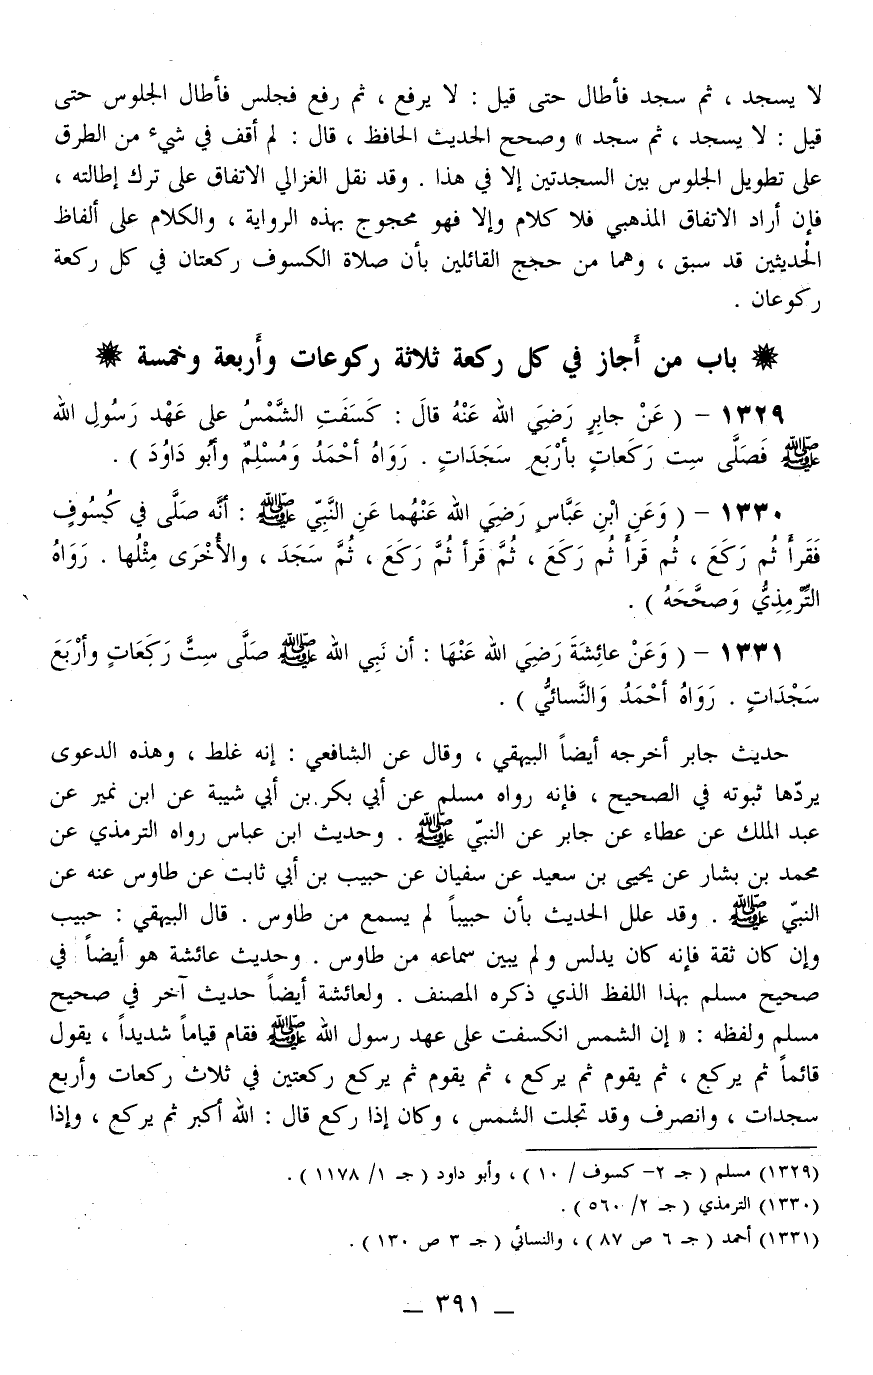 لا يسجد ، ثم سجد فأطال حتى قيل : لا يرفع ، ثم رفع فجلس فأطال الجلوس حتى
قيل : لا يسجد ، ثم سجد » وصحح الحديث الحافظ ، قال : لم أقف في شيء من الطرق
على تطويل الجلوس بين السجدتين إلا في هذا . وقد نقل الغزالي الاتفاق على ترك إطالته ،
فإن أراد الاتفاق المذهبي فلا كلام وإلا فهو محجوج بهذه الرواية ، والكلام على ألفاظ
الحْديثين قد سبق ، وهما من حجج القائلين بأن صلاة الكسوف ركعتان في كل ركعة
ركوعان .
❋ باب من أَجاز في كل ركعة ثلاثة ركوعات وأَربعة وخمسة ❋
١٣٢٩ – ( عَنْ جابِرٍ رَضِيَ الله عَنْهُ قالَ : كَسَفَتِ الشَّمْسُ على عَهْد رَسُولِ الله
ﷺ فَصَلَّى سِت رَكَعاتٍ بأرْبَعِ سَجَدَاتٍ . رَوَاهُ أحْمَدُ وَمُسْلِمٌ وأَبُو دَاوُدَ ) .
١٣٣٠ – ( وَعَنِ ابْنِ عَبَّاسٍ رَضِيَ الله عَنْهُما عَنِ النَّبِيّ ﷺ : أنَّه صَلَّى في كُسُوفٍ
فَقَرأَ ثُم رَكَعَ ، ثُم قَرأَ ثُم رَكَعَ ، ثُمَّ قَرأ ثُمَّ رَكَعَ ، ثُمَّ سَجَدَ ، والأُخْرَى مِثْلُها . رَوَاهُ
التِّرْمِذِيُّ وَصحَّحَهُ ) .
١٣٣١ – ( وَعَنْ عائِشَةَ رَضِيَ الله عَنْهَا : أن نَبِي الله ﷺ صَلَّى سِتَّ رَكَعَاتٍ وأرْبَعَ
سَجْدَاتٍ . رَوَاهُ أحْمَدُ وَالنَّسائيُّ ) .
حديث جابر أخرجه أيضاً البيهقي ، وقال عن الشافعي : إنه غلط ، وهذه الدعوى
يردّها ثبوته في الصحيح ، فإنه رواه مسلم عن أبي بكر بن أبي شيبة عن ابن نمير عن
عبد الملك عن عطاء عن جابر عن النبيّ ﷺ . وحديث ابن عباس رواه الترمذي عن
محمد بن بشار عن يحيى بن سعيد عن سفيان عن حبيب بن أبي ثابت عن طاوس عنه عن
النبيّ ﷺ . وقد علل الحديث بأن حبيباً لم يسمع من طاوس . قال البيهقي : حبيب
وإن كان ثقة فإنه كان يدلس ولم يبين سماعه من طاوس . وحديث عائشة هو أيضاً في
صحيح مسلم بهذا اللفظ الذي ذكره المصنف . ولعائشة أيضاً حديث آخر في صحيح
مسلم ولفظه : « إن الشمس انكسفت على عهد رسول الله ﷺ فقام قياماً شديداً ، يقول
قائماً ثم يركع ، ثم يقوم ثم يركع ، ثم يقوم ثم يركع ركعتين في ثلاث ركعات وأربع
سجدات ، وانصرف وقد تجلت الشمس ، وكان إذا ركع قال : الله أكبر ثم يركع ، وإذا
(١٣٢٩) مسلم ( جـ ٢– كسوف / ١٠ ) ، وأبو داود ( جـ ١/ ١١٧٨ ) .
(١٣٣٠) الترمذي ( جـ ٢/ ٥٦٠ ) .
(١٣٣١) أحمد ( جـ ٦ ص ٨٧ ) ، والنسائي ( جـ ٣ ص ١٣٠ ) .
– ٣٩١ –